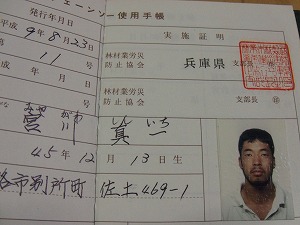 ェーンソー使用手帳
発行年月日
平成 9年8月23日
11号
成 年 月 日
実施証明
林材業労災
防止協会 兵庫県 支部長 ㊞
林材業労災
防止協会 支部長 ㊞
みや がわ しん いち
宮川 真一
45年12月13日生
市別所町 佐土469-1